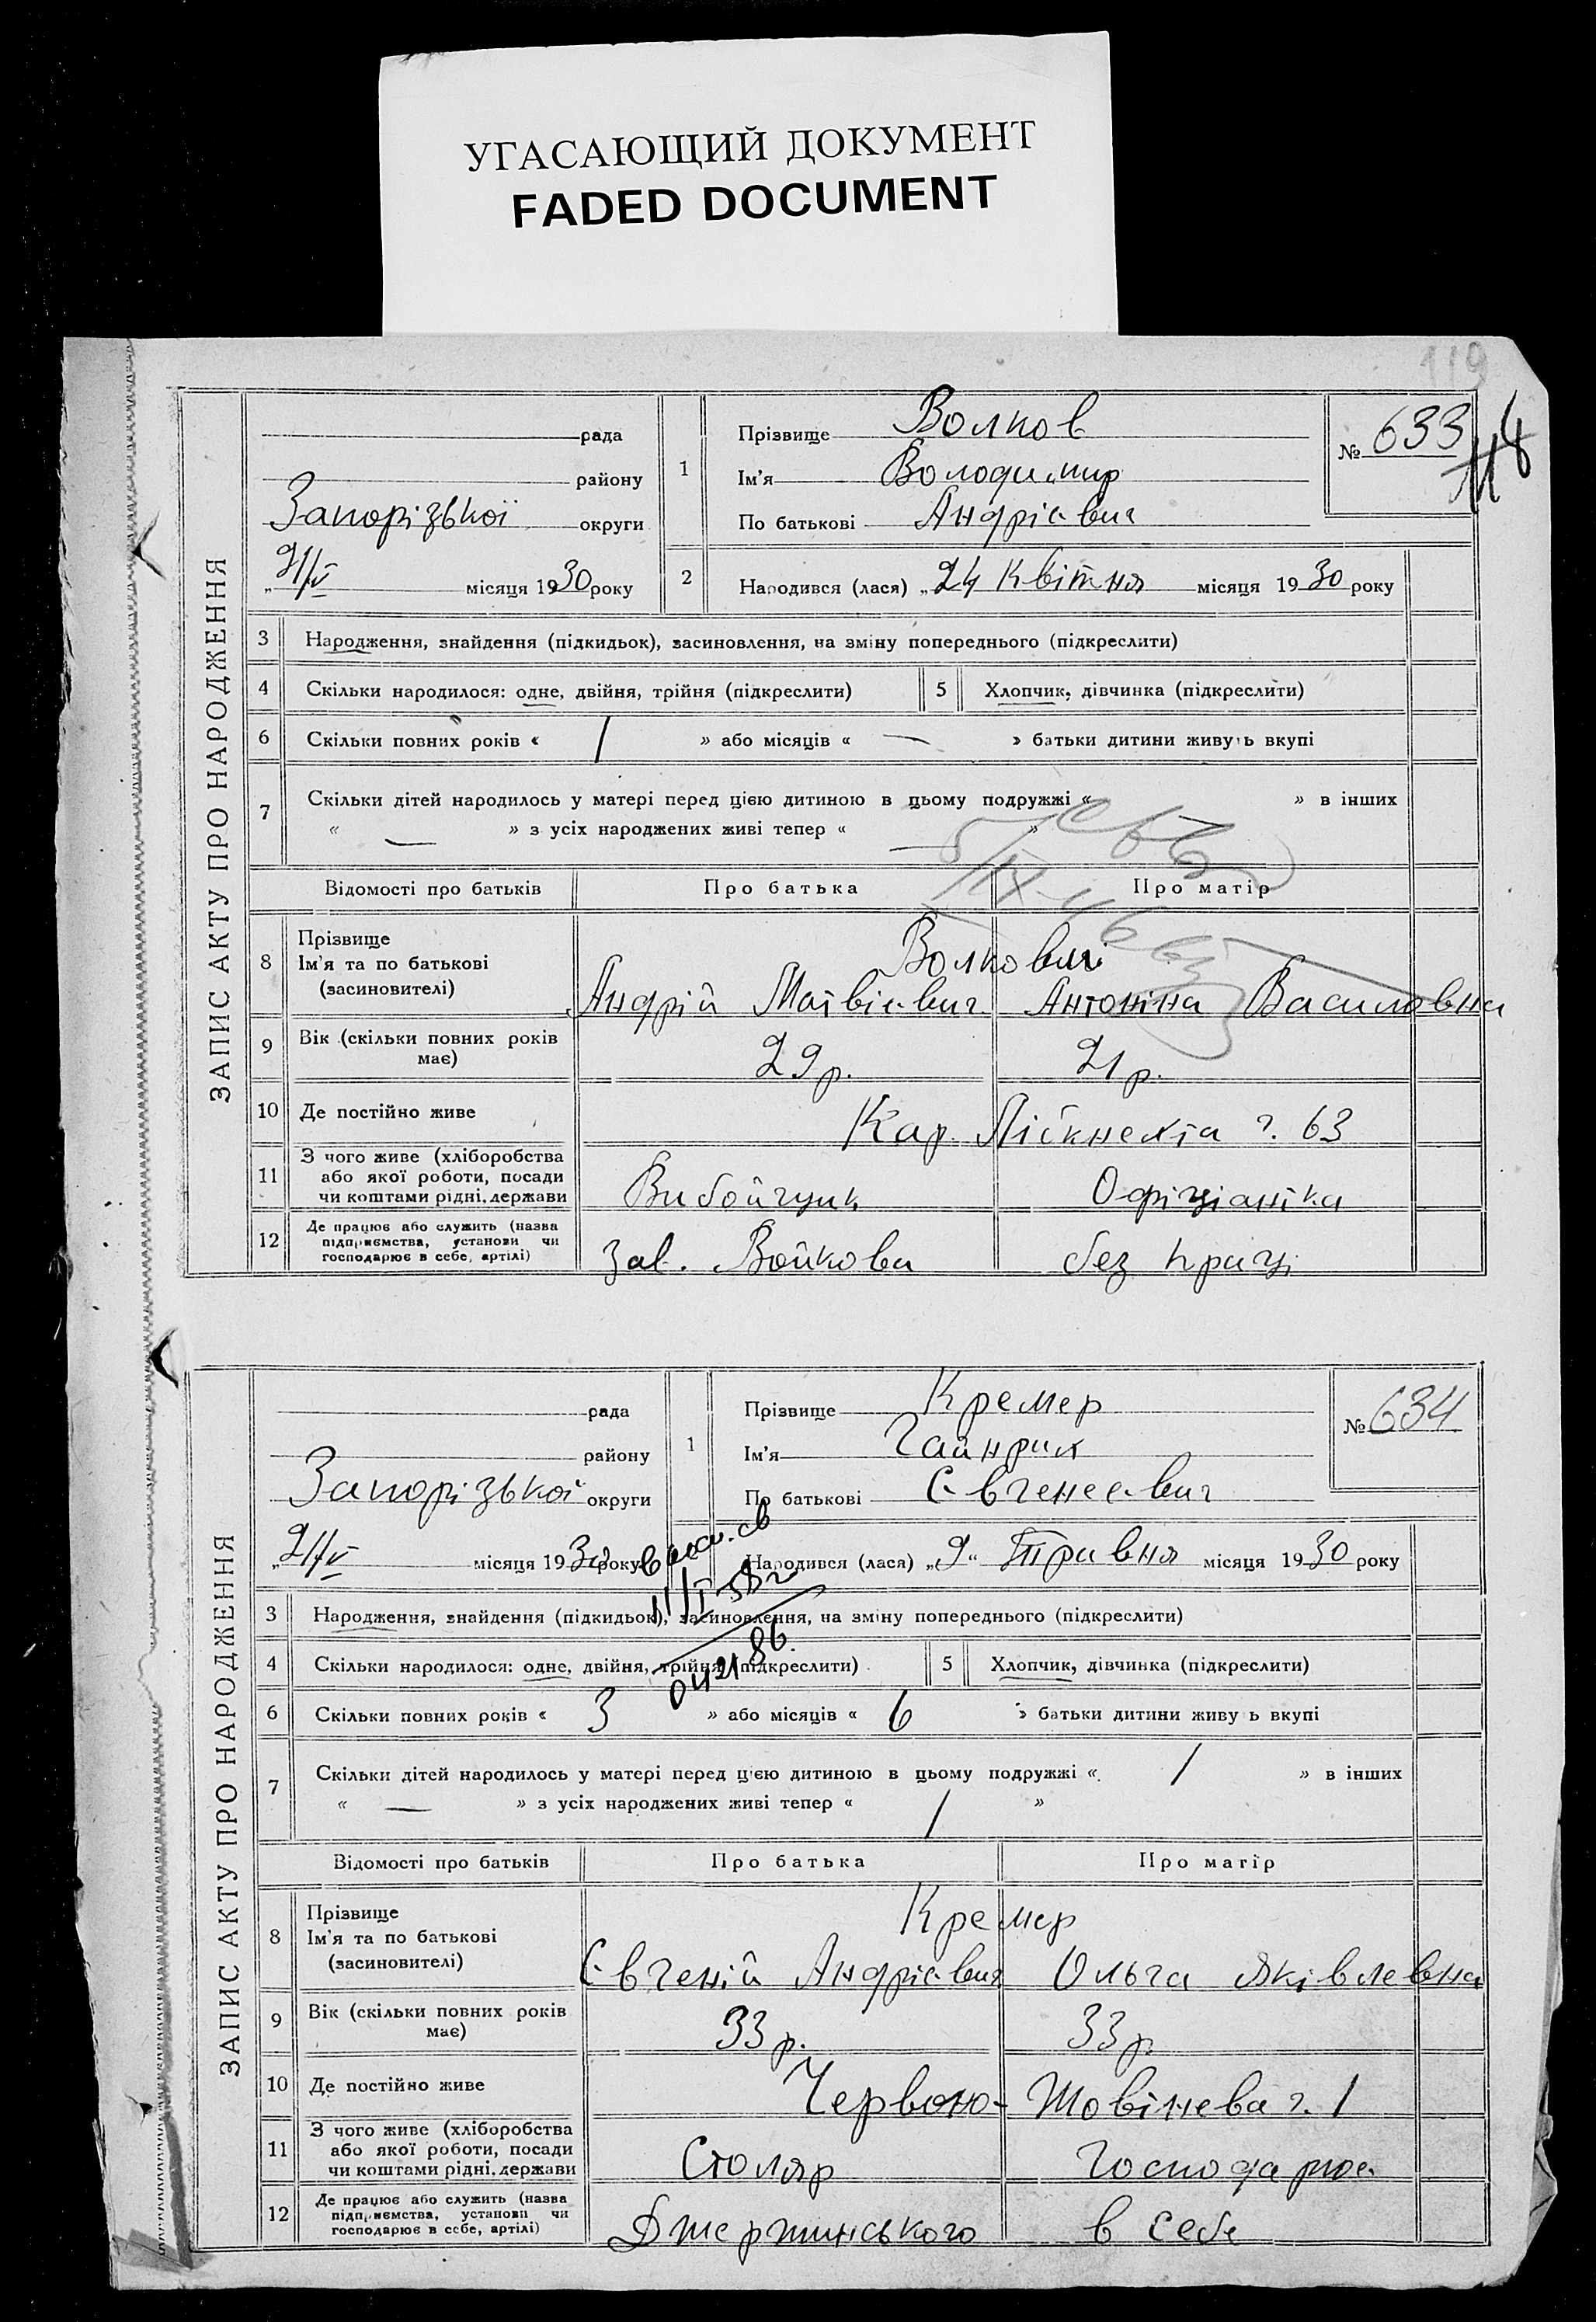 УГАСАЮЩИЙ ДОКУМЕНТ
FADED DOCUMENT
119
118
ЗАПИС АКТУ ПРО НАРОДЖЕННЯ
рада
району
Запорізької округи
„21/V місяця 1930 року
1
Прізвище Волков
Ім'я Володимир
По батькові Андрієвич
№ 633
2
Народився (лася) „24 Квітня місяця 1930 року
3 Народження, знайдення (підкидьок), засиновлення, на зміну попереднього (підкреслити)
4 Скільки народилося: одне, двійня, трійня (підкреслити)
5 Хлопчик, дівчинка (підкреслити)
6 Скільки повних років « 1 » або місяців « — » батьки дитини живуть вкупі
7 Скільки дітей народилось у матері перед цією дитиною в цьому подружжі « » в інших
« — » з усіх народжених живі тепер « — »
Відомості про батьків Про батька Про матір
8 Прізвище
Ім'я та по батькові
(засиновителі)
Волкови
Андрій Матвієвич Антоніна Василовна
9 Вік (скільки повних років має) 29 р. 21 р.
10 Де постійно живе Кар. Лібкнехта ч. 63
11 З чого живе (хліборобства
або якої роботи, посади
чи коштами рідні, держави
Вибойчник Офіціантка
12 Де працює або служить (назва
підприємства, установи чи
господарює в себе, артілі)
Зав. Войкова без праці
ЗАПИС АКТУ ПРО НАРОДЖЕННЯ
рада
району
Запорізької округи
„21/V місяця 1930 року
1
Прізвище Кремер
Ім'я Гайнрих
По батькові Євгенеєвич
№ 634
Народився (лася) „9“ Травня місяця 1930 року
3 Народження, знайдення (підкидьок), засиновлення, на зміну попереднього (підкреслити)
4 Скільки народилося: одне, двійня, трійня (підкреслити)
5 Хлопчик, дівчинка (підкреслити)
6 Скільки повних років « 3 » або місяців « 6 » батьки дитини живуть вкупі
7 Скільки дітей народилось у матері перед цією дитиною в цьому подружжі « 1 » в інших
« — » з усіх народжених живі тепер « 1 »
Відомості про батьків Про батька Про матір
8 Прізвище
Ім'я та по батькові
(засиновителі)
Кремер
Євгеній Андрієвич Ольга Яківлевна
9 Вік (скільки повних років має) 33 р. 33 р.
10 Де постійно живе Червоно- ч. 1
11 З чого живе (хліборобства
або якої роботи, посади
чи коштами рідні, держави
Столяр Господарює
12 Де працює або служить (назва
підприємства, установи чи
господарює в себе, артілі)
Джержинського в себе